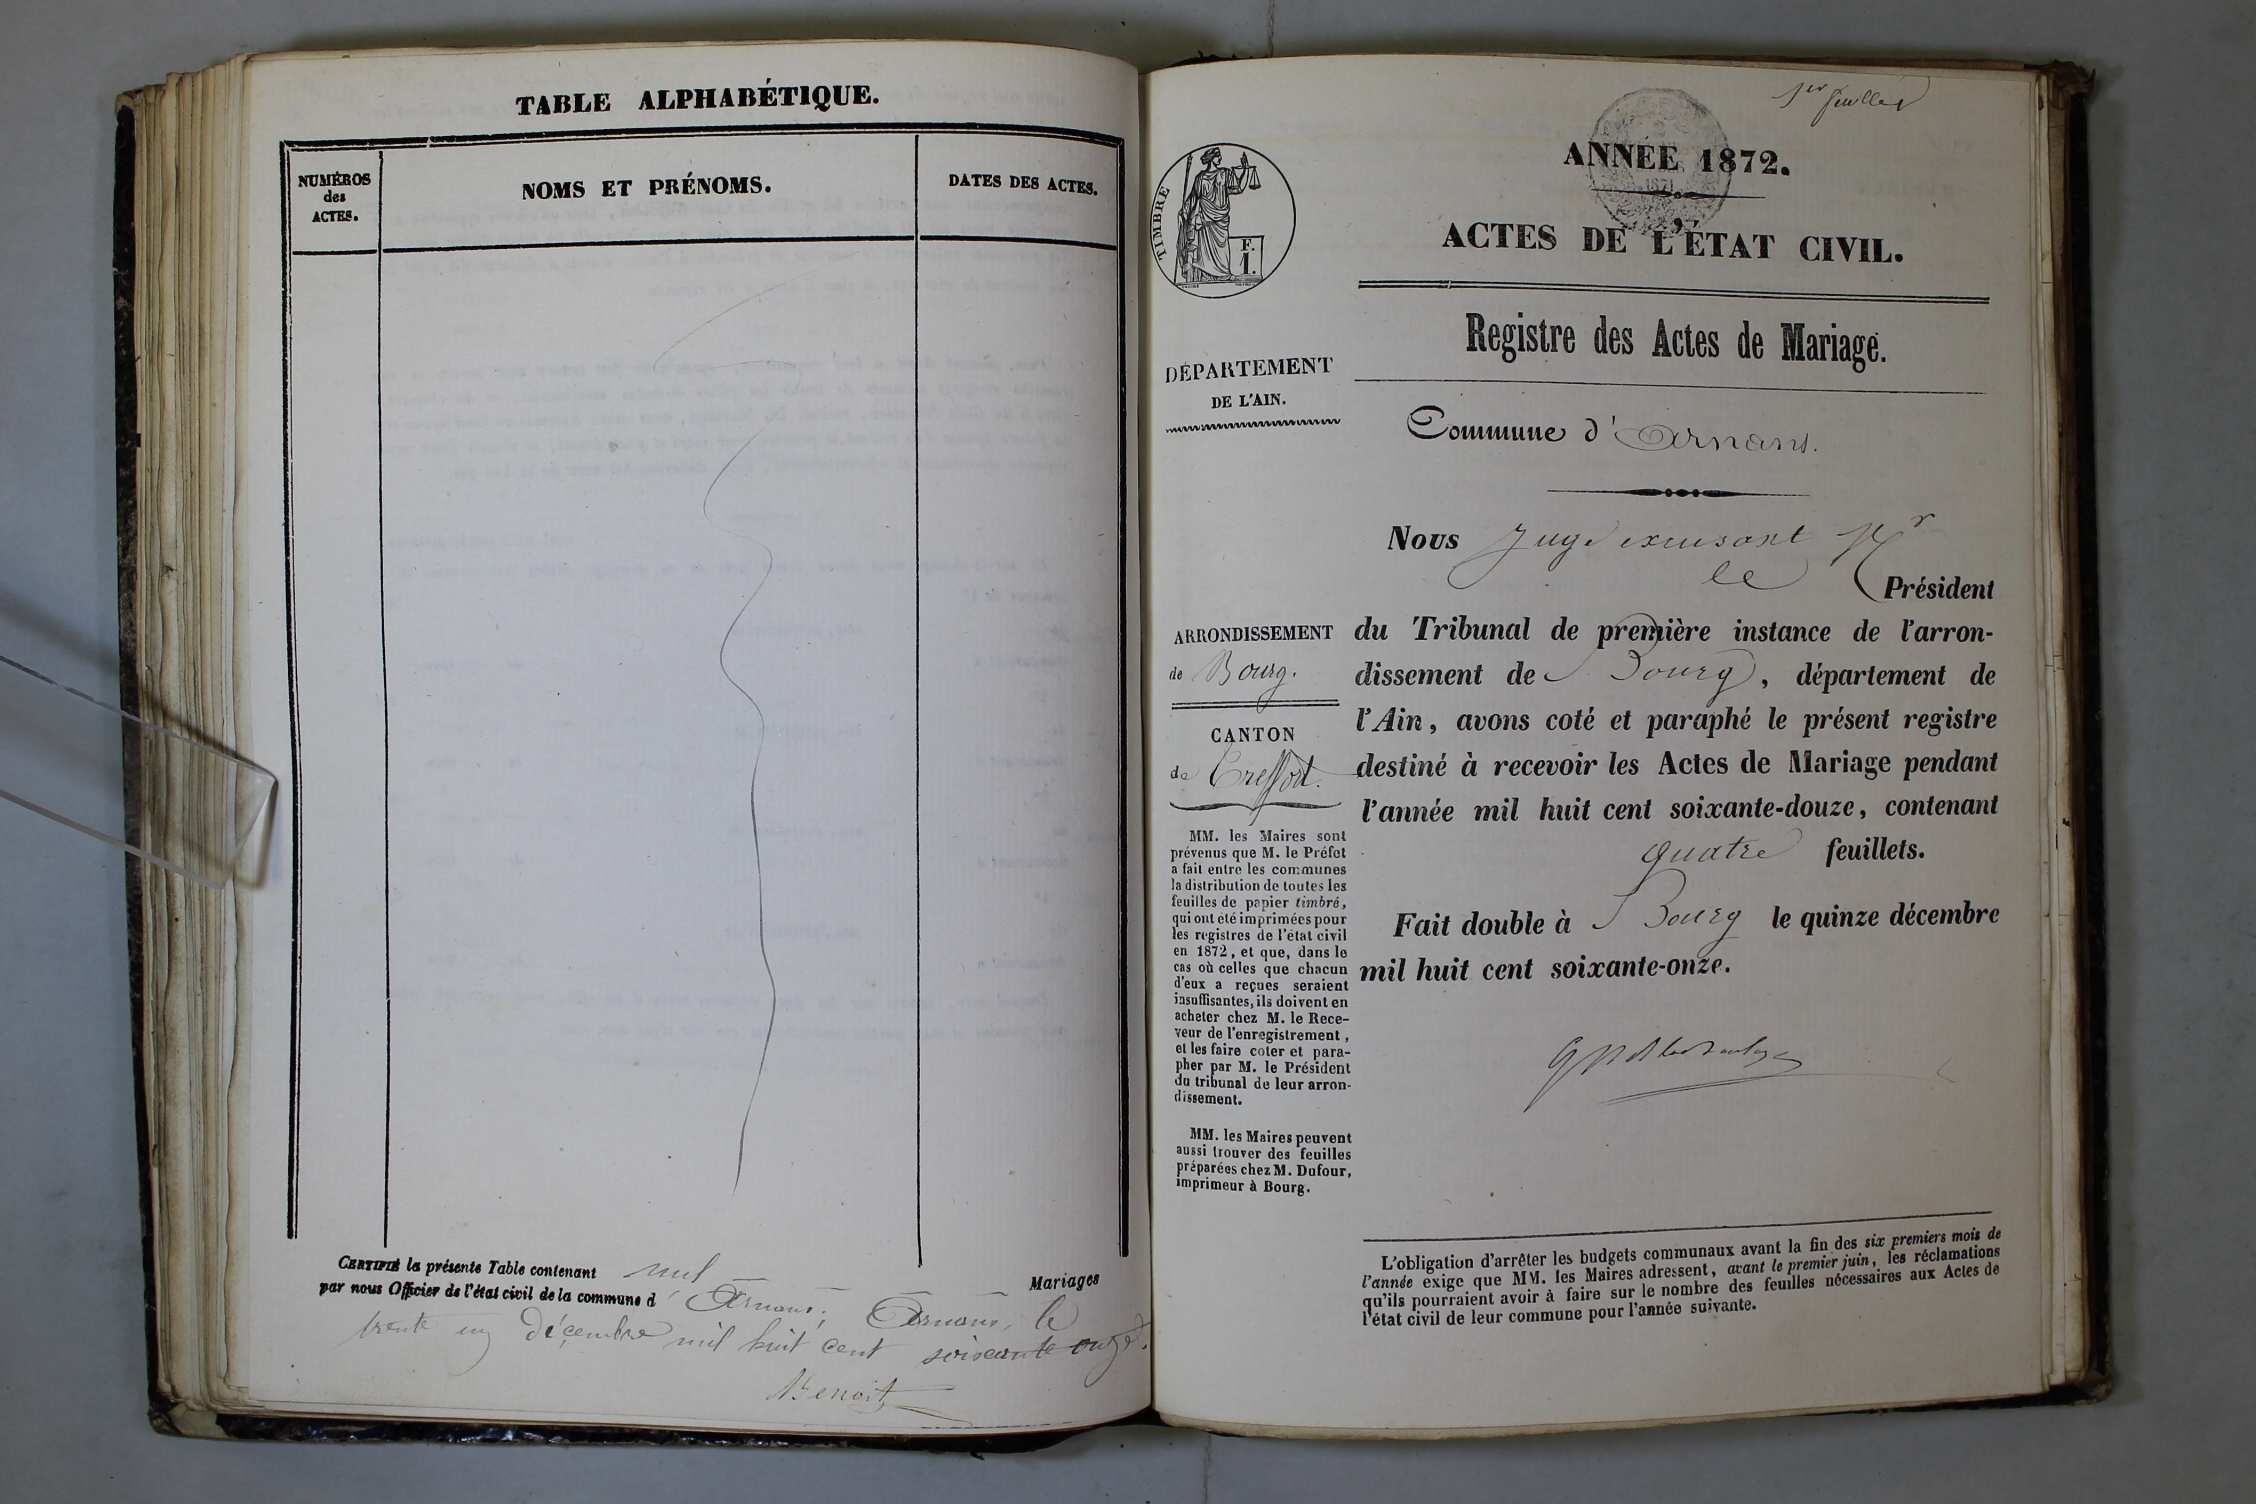 TABLE ALPHABÉTIQUE.
NUMÉROS
des
ACTES.
NOMS ET PRÉNOMS.
DATES DES ACTES.
CERTIFIÉ la présente Table contenant nul Mariages
par nous Officier de l'état civil de la commune d' Arnans, Arnans, le
trente un décembre mil huit cent soixante onze.
Benoit
1er feuillet
TIMBRE
F.
1.
DÉPARTEMENT
DE L'AIN.
ARRONDISSEMENT
de Bourg.
CANTON
de Treffort.
MM. les Maires sont
prévenus que M. le Préfet
a fait entre les communes
la distribution de toutes les
feuilles de papier timbré,
qui ont été imprimées pour
les registres de l'état civil
en 1872, et que, dans le
cas où celles que chacun
d'eux a reçues seraient
insuffisantes, ils doivent en
acheter chez M. le Rece-
veur de l'enregistrement,
et les faire coter et para-
pher par M. le Président
du tribunal de leur arron-
dissement.
MM. les Maires peuvent
aussi trouver des feuilles
préparées chez M. Dufour,
imprimeur à Bourg.
ANNÉE 1872.
1871
ACTES DE L'ÉTAT CIVIL.
Registre des Actes de Mariage.
Commune d' Arnans.
Nous Juge Mr
le Président
du Tribunal de première instance de l'arron-
dissement de Bourg, département de
l'Ain, avons coté et paraphé le présent registre
destiné à recevoir les Actes de Mariage pendant
l'année mil huit cent soixante-douze, contenant
quatre feuillets.
Fait double à Bourg le quinze décembre
mil huit cent soixante-onze.
L'obligation d'arrêter les budgets communaux avant la fin des six premiers mois de
l'année exige que MM. les Maires adressent, avant le premier juin, les réclamations
qu'ils pourraient avoir à faire sur le nombre des feuilles nécessaires aux Actes de
l'état civil de leur commune pour l'année suivante.